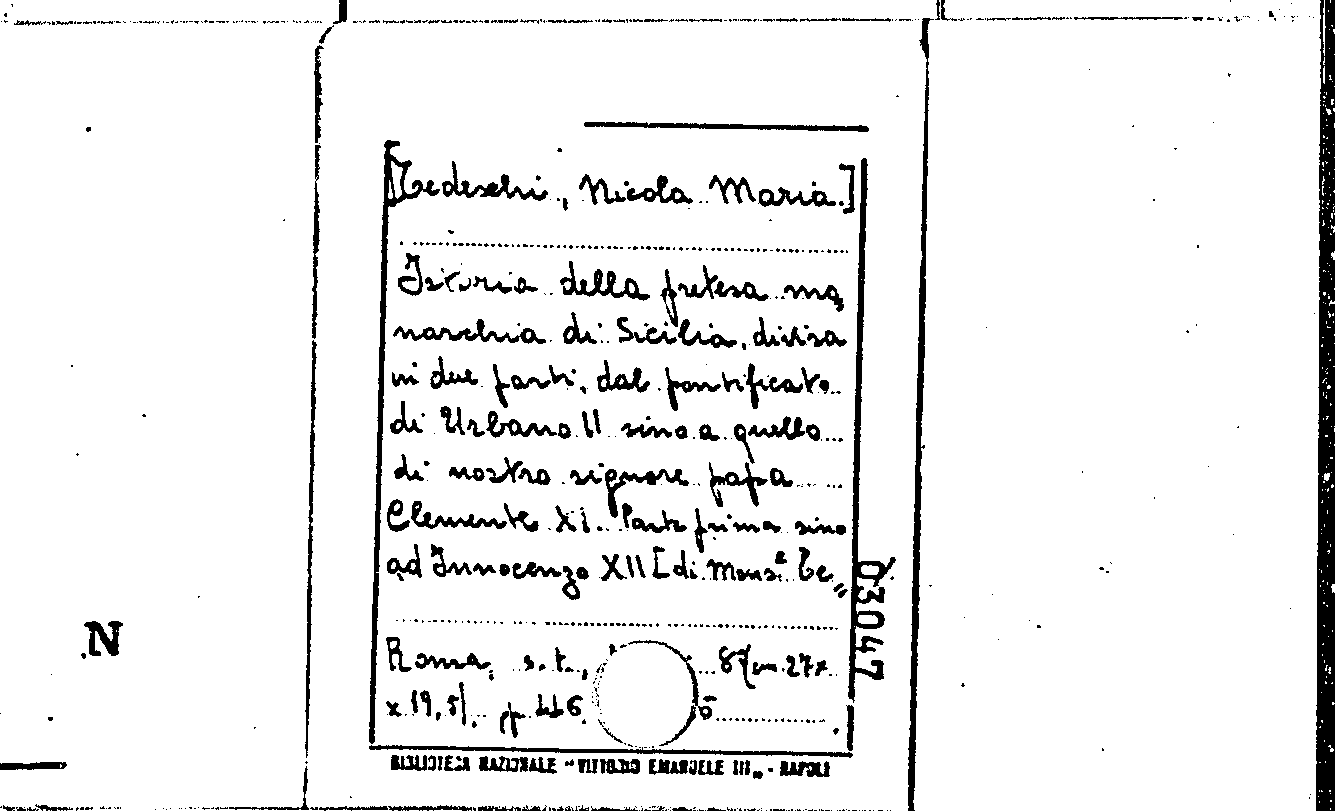 [Tedeschi, Nicola Maria.]
Istoria della pretesa mo,
narchia di Sicilia, divisa
in due parti, dal pontificato
di Urbano II sino a quello
di nostro signore papa
Clemente XI. Parte prima sino
ad Innocenzo XII [di Mons.r Te„
Roma, s.t., 8°(cm. 27x
x 19,5), pp
03047
N
BIBLIOTECA NAZIONALE "VITTORIO EMANUELE III„ - NAPOLI